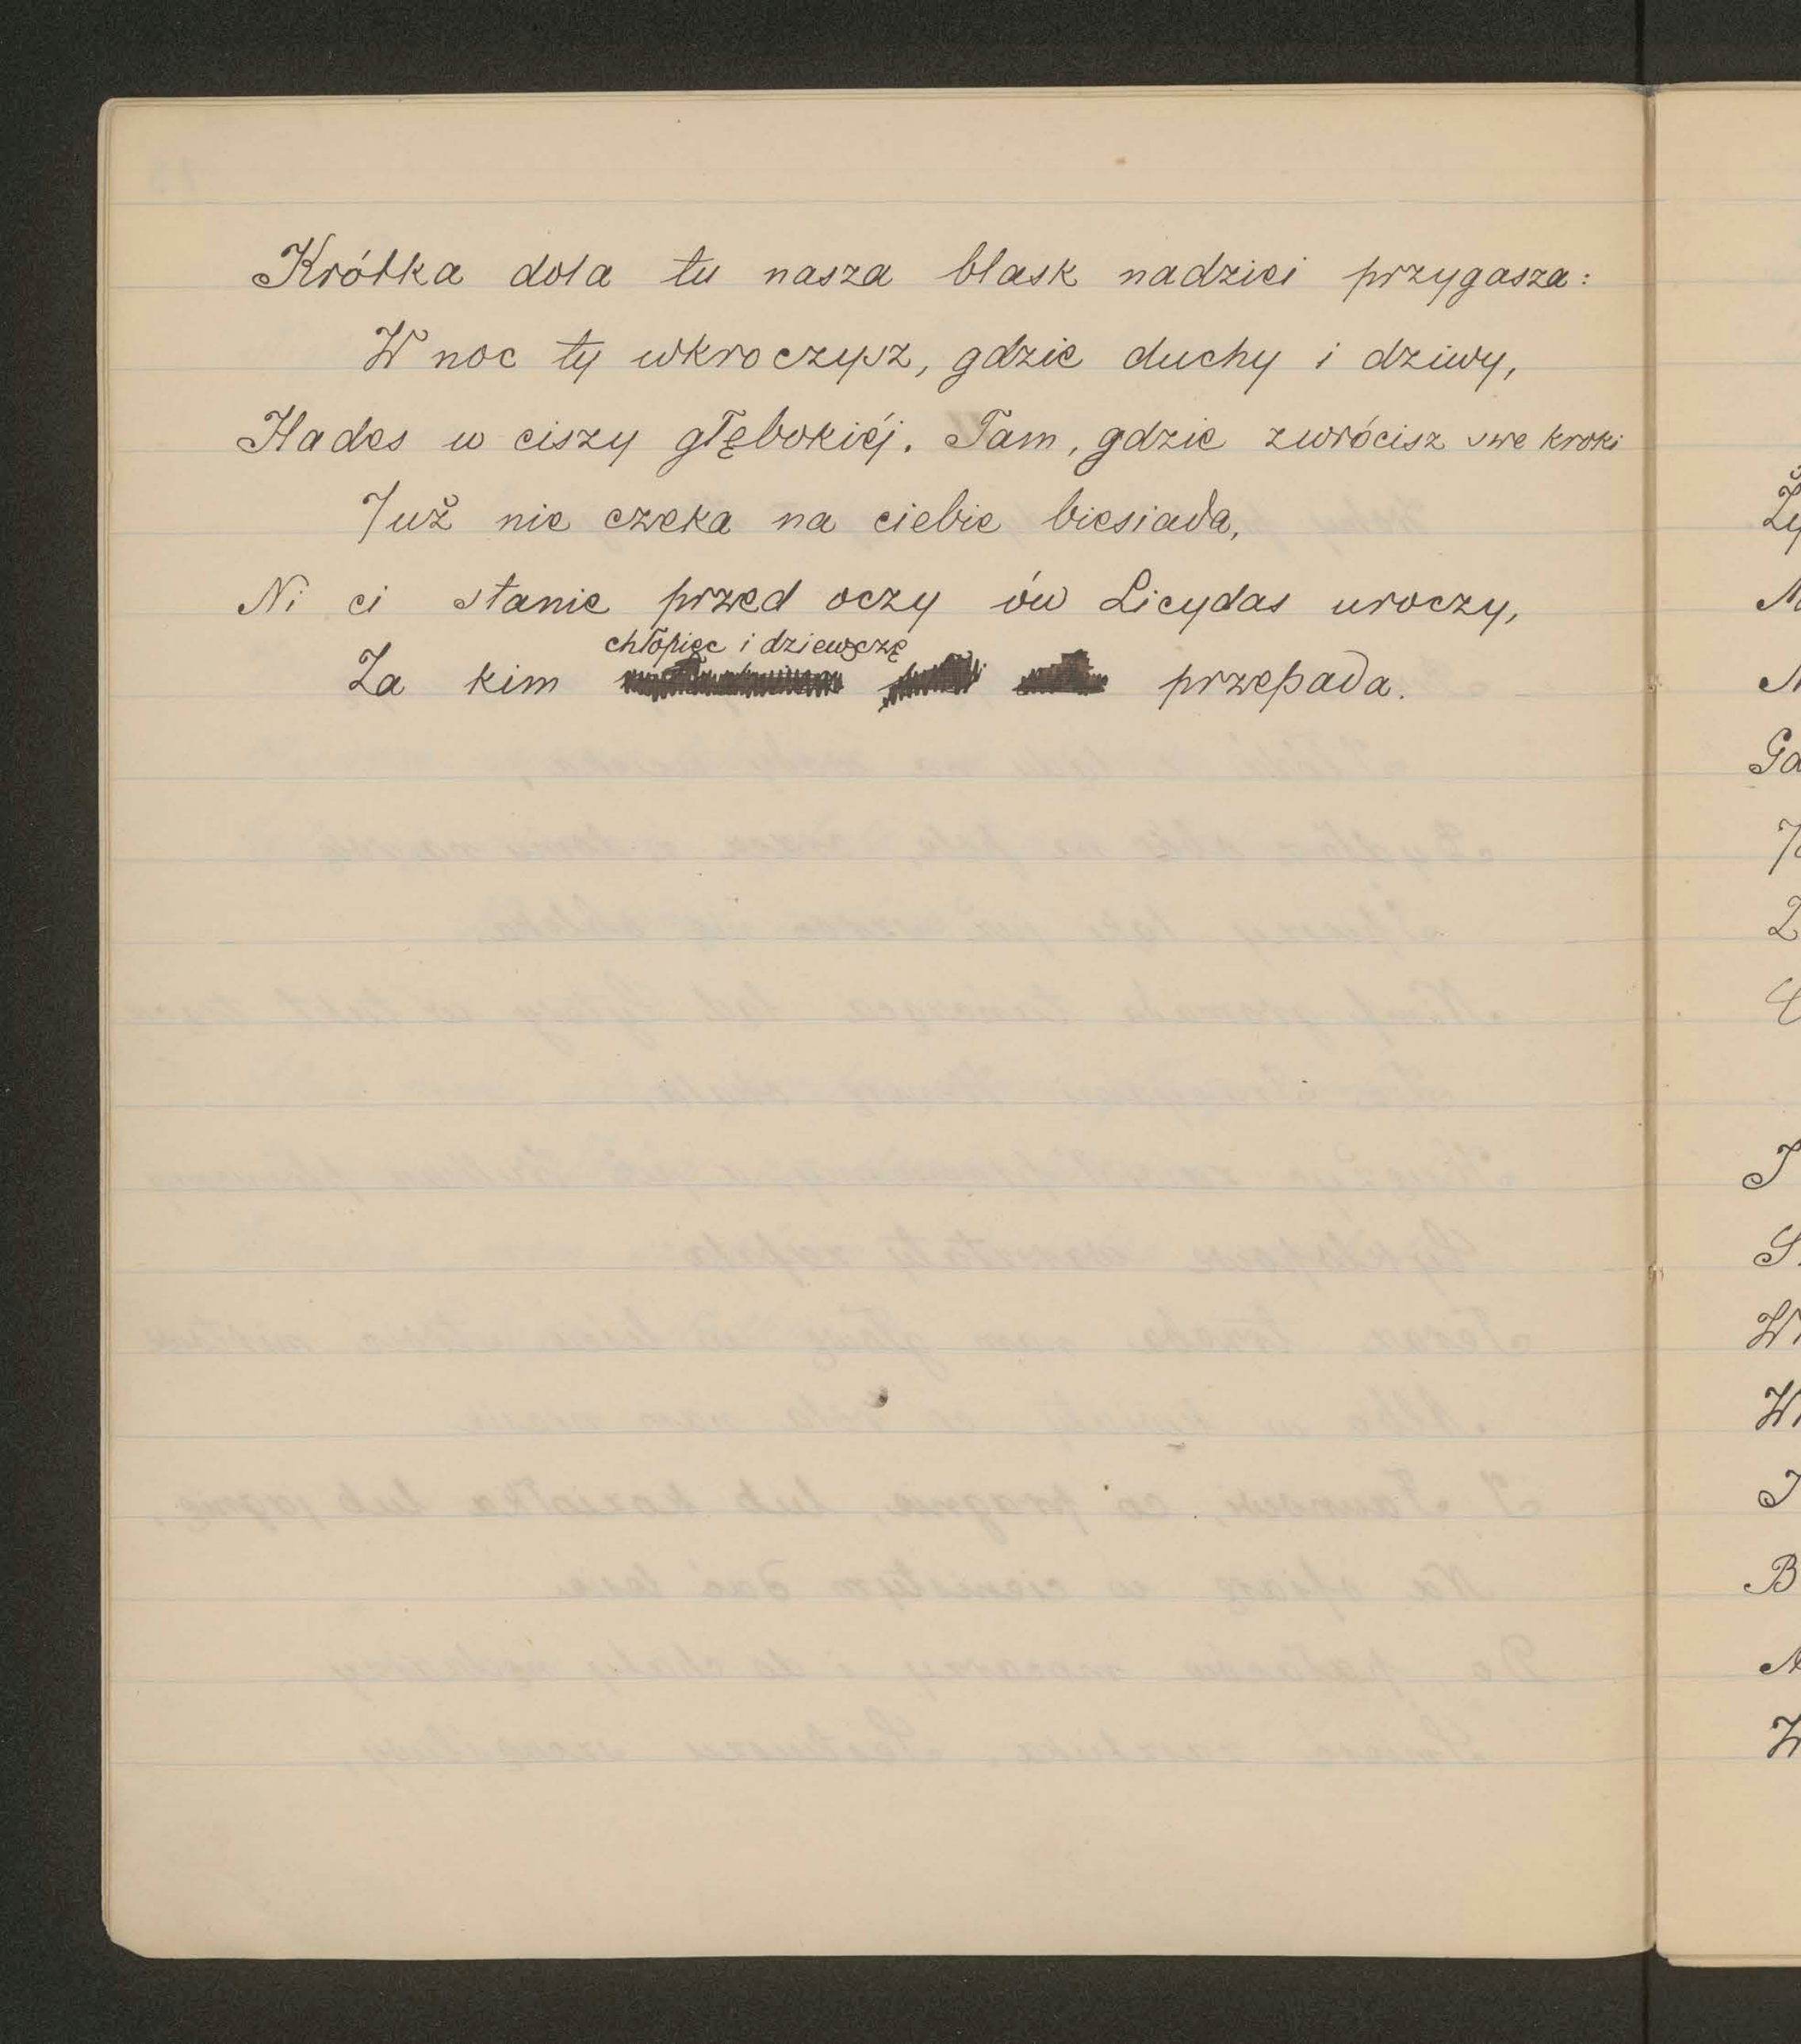 Krótka dola tu nasza blask nadziei przygasza:
W noc ty wkroczysz, gdzie duchy i dziwy,
Hades w ciszy głębokiéj. Tam, gdzie zwrócisz swe kroki
Już nie czeka na ciebie biesiada,
Ni ci stanie przed oczy ów Licydas uroczy,
chłopięc i dziewczę
Za kim przepada.